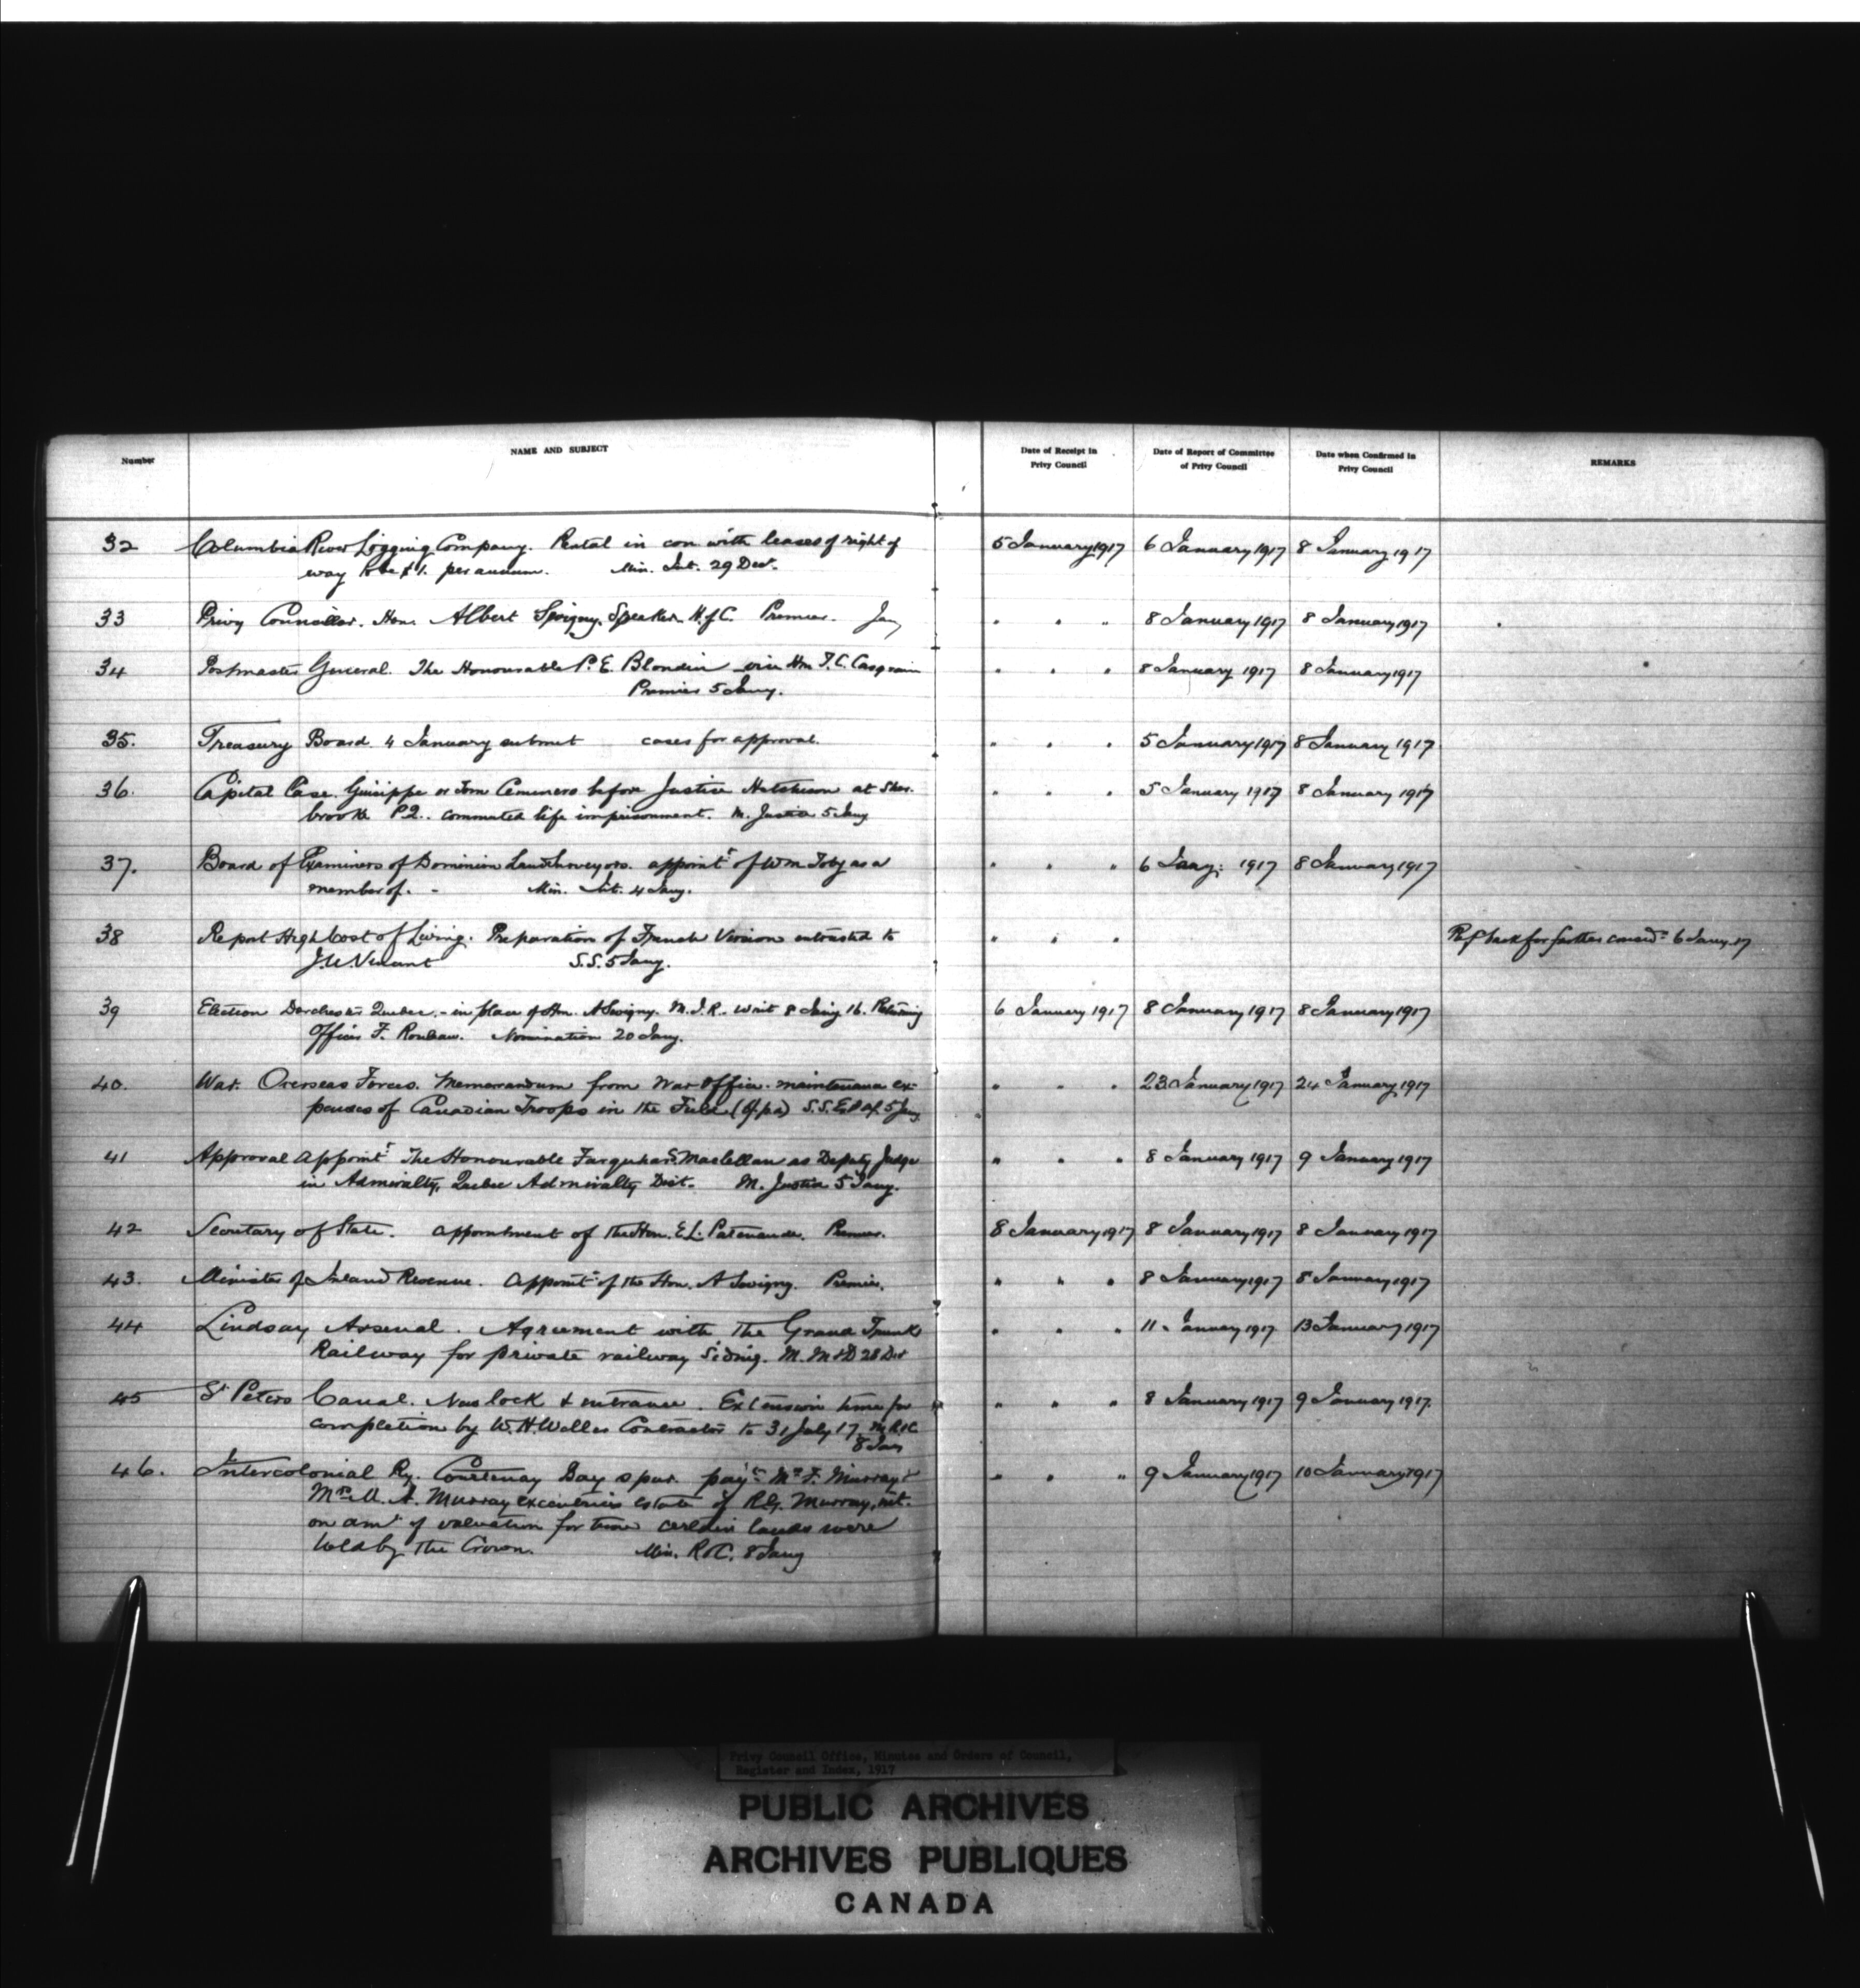 Number
NAME AND SUBJECT
Date of Receipt in
Privy Council
Date of Report of Committee
of Privy Council
Date when Confirmed in
Privy Council
REMARKS
32 Columbia River Logging Company. Rental in con with leases of right of 5 January 1917 6 January 1917 8 January 1917
way to be $1. per annum. Min. Int. 29 Decr.
33 Privy Councillor. Hon. Albert Sevigny. Speaker H of C. Premier. Jany " " " 8 January 1917 8 January 1917
34 Postmaster General. The Honourable P. E. Blondin vice Hon T. C. Casgrain " " " 8 January 1917 8 January 1917
Premier 5 Jany.
35. Treasury Board 4 January submit cases for approval. " " " 5 January 1917 8 January 1917
36. Capital Case. Guiseppe or Tom before Justice Hutchison at Sher- " " " 5 January 1917 8 January 1917
brooke P.Q. commuted life imprisonment. M. Justice 5 Jany
37. Board of Examiners of Dominion Land Surveyors. appointt of Wm Toby as a " " " 6 Jany. 1917 8 January 1917
member of. - Min. Int. 4 Jany.
38 Report High Cost of Living. Preparation of French Version entrusted to " " " Ref back for further consdn 6 Jany. 17
S.S. 5 Jany.
39 Election Dorchester Quebec, - in place of Hon. A Sevigny. M.I.R. writ 8 Jany 16. Returning 6 January 1917 8 January 1917 8 January 1917
Officer F. Rouleau. Nomination 20 Jany.
40. War. Overseas Forces. Memorandum from War Office. maintenance ex- " " " 23 January 1917 24 January 1917
penses of Canadian Troops in the Field S.S. 5 Jany
41 Approval appointt The Honourable Farquhar S. Maclellan as Deputy Judge " " " 8 January 1917 9 January 1917
in Admiralty, Quebec Admiralty Dist. M. Justice 5 Jany.
42 Secretary of State. appointment of the Hon. E.L. Patenaude. Premier. 8 January 1917 8 January 1917 8 January 1917
43. Minister of Inland Revenue. Appointt of the Hon. A Sevigny. Premier. " " " 8 January 1917 8 January 1917
44 Lindsay Arsenal. Agreement with the Grand Trunk " " " 11 January 1917 13 January 1917
Railway for private railway siding. M. M & D 28 Decr
45 St Peters Canal. New lock & entrance. Extension time for " " " 8 January 1917 9 January 1917.
completion by W. H. Weller Contractor to 31 July 17. M R & C
8 Jany
46. Intercolonial Ry. Courtenay Bay spur. payt Mr F. Murray & " " " 9 January 1917 10 January 1917
Mrs A. Murray estate of R.G. Murray, int.
on amt of valuation for time certain lands were
held by the Crown. Min. R & C. 8 Jany
Privy Council Office, Minutes and Orders of Council,
Register and Index, 1917
PUBLIC ARCHIVES
ARCHIVES PUBLIQUES
CANADA